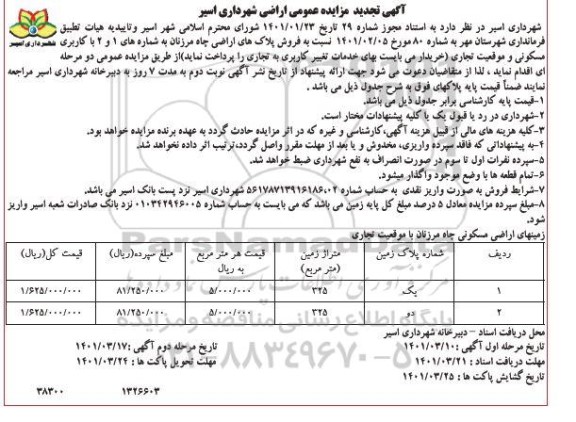 آگهی تجدید مزایده عمومی اراضی شهرداری اسیر
شهرداری اسیر در نظر دارد به استناد مجوز شماره ۲۹ تاریخ ۱۴۰۱/۰۱/۲۳ شورای محترم اسلامی شهر اسیر وتاییدیه هیات تطبیق
فرمانداری شهرستان مهر به شماره ۸۰ مورخ ۱۴۰۱/۰۲/۰۵ نسبت به فروش پلاک های اراضی چاه مرزنان به شماره های ۱ و ۲ با کاربری
مسکونی و موقعیت تجاری (خریدار می بایست بهای خدمات تغییر کاربری به تجاری را پرداخت نماید)از طریق مزایده عمومی دو مرحله
ای اقدام نماید ، لذا از متقاضیان دعوت می شود جهت ارائه پیشنهاد از تاریخ نشر آگهی نوبت دوم به مدت ۷ روز به دبیرخانه شهرداری اسیر مراجعه
نمایند ضمناً قیمت پایه پلاکهای فوق به شرح جدول ذیل می باشد .
۱-قیمت پایه کارشناسی برابر جدول ذیل می باشد.
۲-شهرداری در رد یا قبول یک یا کلیه پیشنهادات مختار است.
۳-کلیه هزینه های مالی از قبیل هزینه آگهی،کارشناسی و غیره که در اثر مزایده حادث گردد به عهده برنده مزایده خواهد بود.
۴-به پیشنهاداتی که فاقد سپرده واریزی، مخدوش و یا بعد از مهلت مقرر واصل گردد،ترتیب اثر داده نخواهد شد.
۵-سپرده نفرات اول تا سوم در صورت انصراف به نفع شهرداری ضبط خواهد شد.
۶-تمام قطعه ها با وضع موجود واگذار میشود.
۷-شرایط فروش به صورت واریز نقدی به حساب شماره ۵۶۱۷۸۷۱۳۹۱۶۱۸۶۰۰۲ شهرداری اسیر نزد پست بانک اسیر می باشد.
۸-مبلغ سپرده مزایده معادل ۵ درصد مبلغ کل پایه زمین می باشد که می بایست به حساب شماره ۰۱۰۳۴۲۹۴۶۰۰۵ نزد بانک صادرات شعبه اسیر واریز
شود.
زمینهای اراضی مسکونی چاه مرزنان با موقعیت تجاری
ردیف شماره پلاک زمین متراژ زمین (متر مربع) قیمت هر متر مربع به ریال مبلغ سپرده(ریال) قیمت کل(ریال)
۱ یک ۳۲۵ ۵/۰۰۰/۰۰۰ ۸۱/۲۵۰/۰۰۰ ۱/۶۲۵/۰۰۰/۰۰۰
۲ دو ۳۲۵ ۵/۰۰۰/۰۰۰ ۸۱/۲۵۰/۰۰۰ ۱/۶۲۵/۰۰۰/۰۰۰
محل دریافت اسناد – دبیرخانه شهرداری اسیر
تاریخ مرحله اول آگهی :۱۴۰۱/۰۳/۱۰ تاریخ مرحله دوم آگهی :۱۴۰۱/۰۳/۱۷
مهلت دریافت اسناد : ۱۴۰۱/۰۳/۲۱ مهلت تحویل پاکت ها : ۱۴۰۱/۰۳/۲۴
تاریخ گشایش پاکت ها : ۱۴۰۱/۰۳/۲۵
۱۳۲۶۶۰۳ ۳۸۳۰۰
ParsNamadData
۰۲۱-۸۸۳۴۹۶۷۰-۵